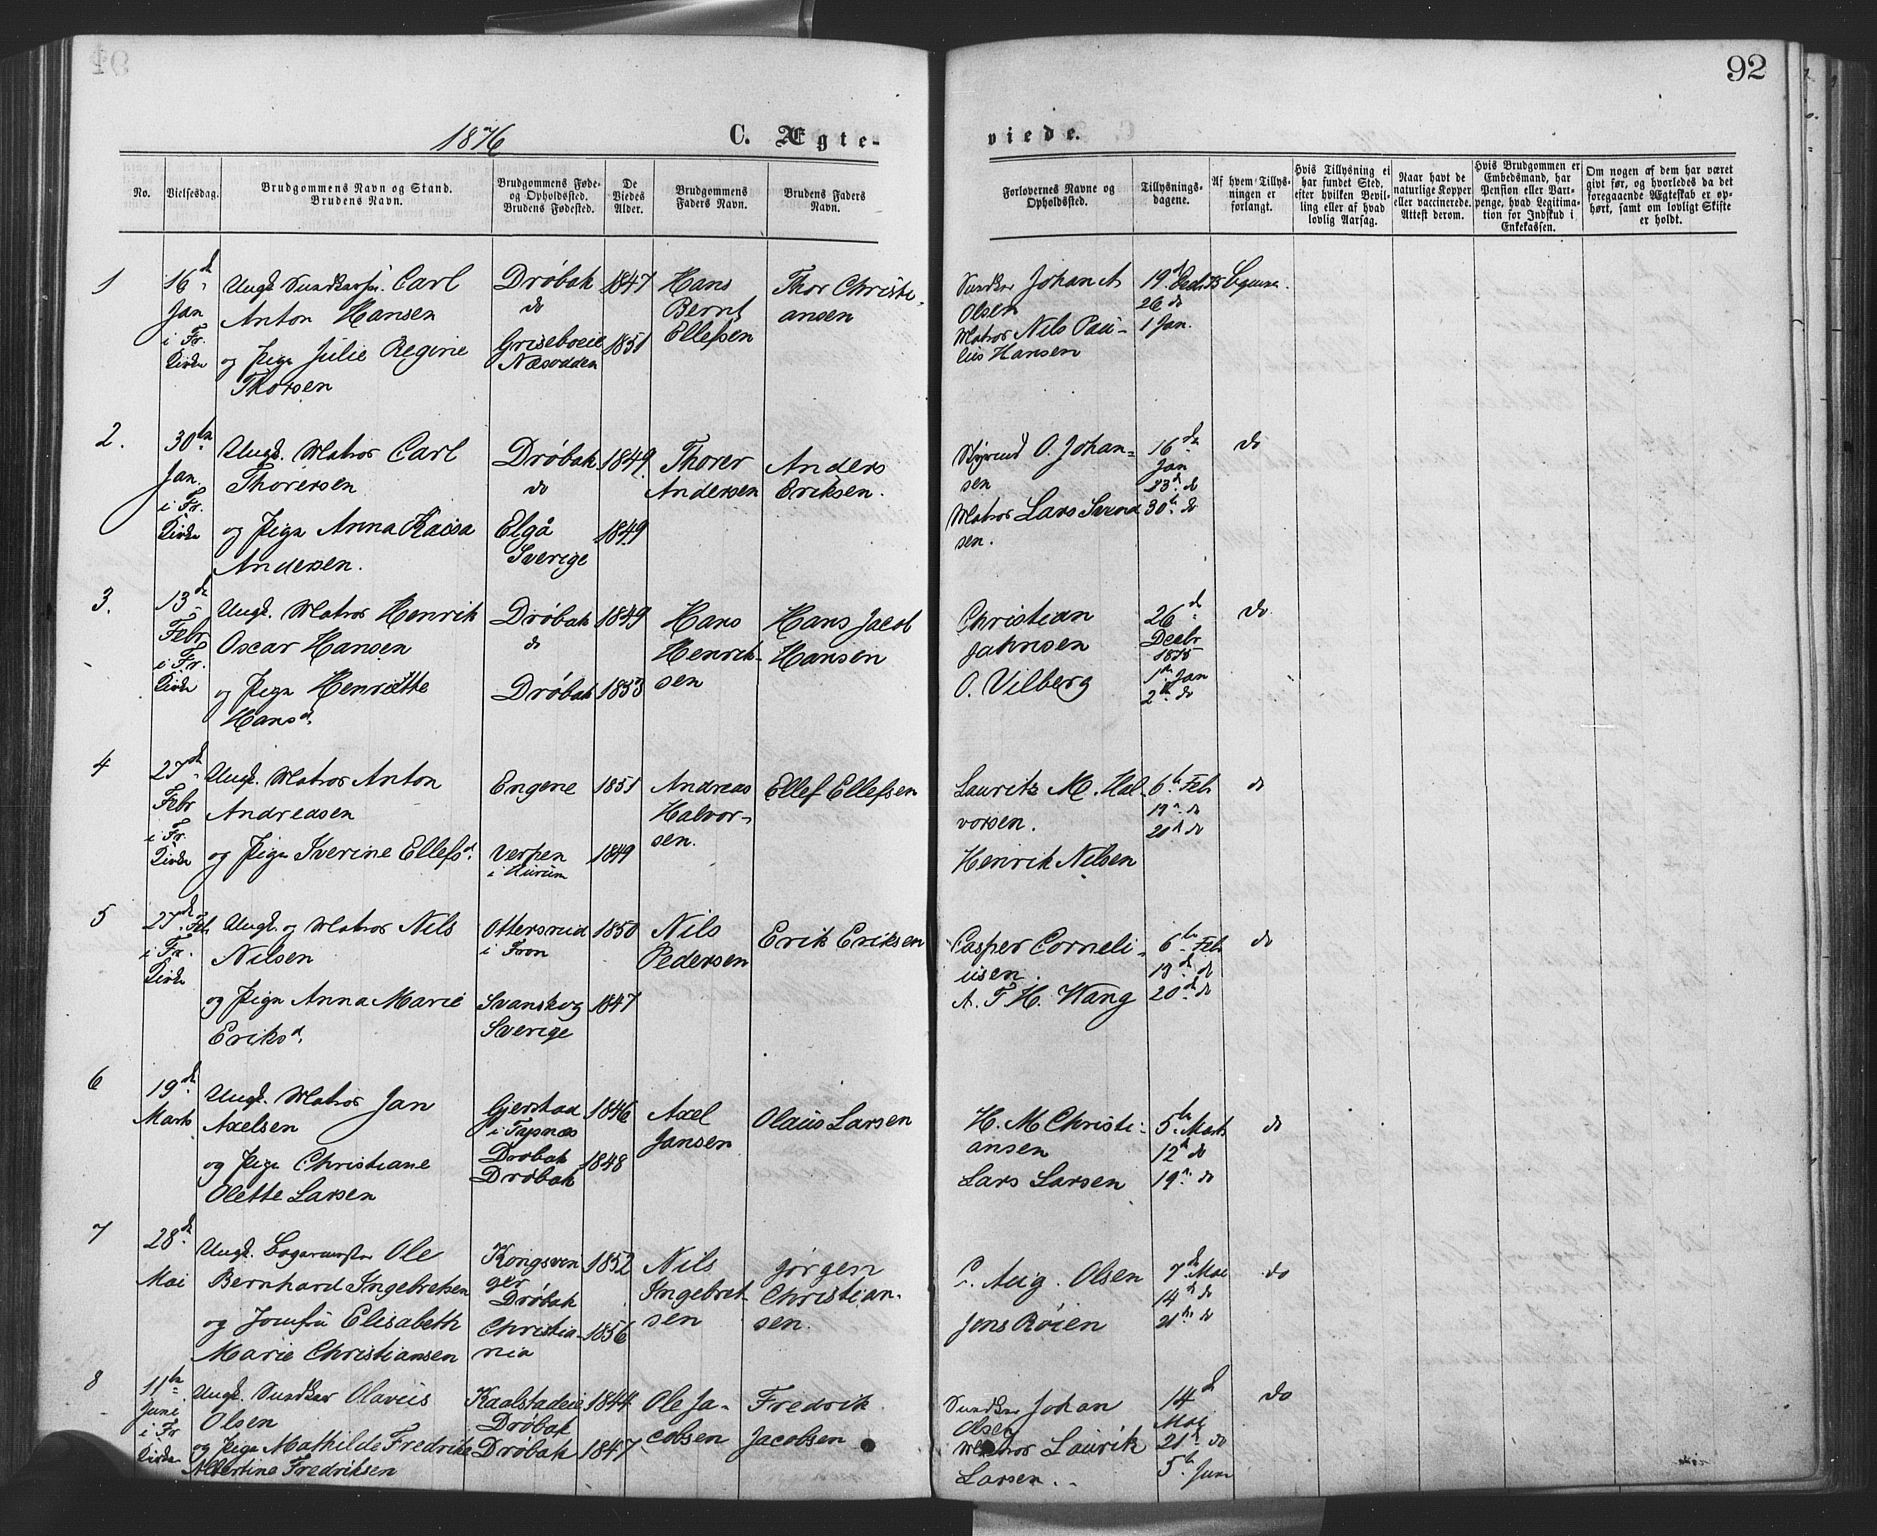 92
1876 C. Ægte- viede.
No. Vielsesdag. Brudgommens Navn og Stand. Brudens Navn. Brudgommens Føde- og Opholdssted. Brudens Fødested. De Viedes Alder. Brudgommens Faders Navn. Brudens Faders Navn.
Forlovernes Navne og Opholdssted. Tillysnings- dagene. Af hvem Tillys- ningen er forlangt. Hvis Tillysning ei har fundet Sted, efter hvilken Bevil- ling eller af hvad lovlig Aarsag. Naar havt de naturlige Kopper eller vaccinerede. Attest derom. Hvis Brudgommen er Embedsmand, har Pension eller Vart- penge, hvad Legitima- tion for Indskud i Enkekassen. Om nogen af dem har været givt før, og hvorledes da det foregaaende Ægteskab er op- hørt, samt om lovligt Skifte er holdt.
1 16de Ungk. Carl Drøbak 1847 Hans Thor Christi-
Jan Anton Hansen do Bernt ansen
i Fr. og Pige Julie Regine Griseboeie 1851 Ellefsen
Kirke Thorsen Næsodden
Johan A. 19de Decbr 75
Olsen 26 do
Matros Nils Pau- 1 Jan.
lius Hansen
2. 30te Ungk. Matros Carl Drøbak 1849 Thorer Anders
Jan. Thorersen do Andersen Eriksen.
i Fr. og Pige Anna Kaisa Elgå 1849
Kirke Andersen. Sverige
Styrmd O. Johan- 16de do
sen Jan
23de do
Matros Lars Svend 30te do
sen.
3. 13de Ungk. Matros Henrik Drøbak 1849 Hans Hans Jacob
Febr Oscar Hansen do Henrik- Hansen
i Fr. og Pige Henriette Drøbak 1853 sen
Kirke Hansd.
Christian 26de do
Jahnsen Decbr
1875
O. Vilberg 1ste Jan
2de do
4 27de Ungk. Matros Anton Engene 1851 Andreas Ellef Ellefsen
Febr Andreasen Halvor-
i Fr. og Pige Iverine Ellefsd. Verpen 1849 sen.
Kirke i Hurum
Lauritz M. Hal- 6te Feb do
vorsen. 19de do
20de do
Henrik Nilsen
5 27de Feb Ungk. og Matros Nils Ottersrud 1850 Nils Erik Eriksen
i Fr. Nilsen i Fron Pedersen
Kirke og Pige Anna Marie Svanskog 1847
Eriksd. Sverige
Casper Corneli- 6te Feb do
usen. 13de do
A. F. H. Wang 20de do
6 19de Ungk. Matros Jan Gjerstad 1846 Axel Olaus Larsen
Marts Axelsen i Jansen
og Pige Christiane Drøbak 1848
Olette Larsen Drøbak
H. M Christi- 5te Marts do
ansen 12te do
Lars Larsen 19de do
7 28de Ungk. Bagermester Ole Kongsvin 1852 Nils Jørgen
Mai Bernhard Ingebretsen ger Ingebret- Christian-
Drøbak sen sen.
og Jomfru Elisabeth Christia- 1856
Marie Christiansen nia
Aug. Olsen 7de Mai do
14de do
Jens Røien 21de do
8 11te Ungk. Olavus Kaalstadeie 1844 Ole Ja- Fredrik
Juni Olsen Drøbak cobsen Jacobsen
i Fr og Pige Mathilde Fredrike Drøbak 1847
Kirke Albertine Fredriksen
Johan 14de do
Olsen Mai
Matros Laurik 21de do
Larsen. 5te Juni